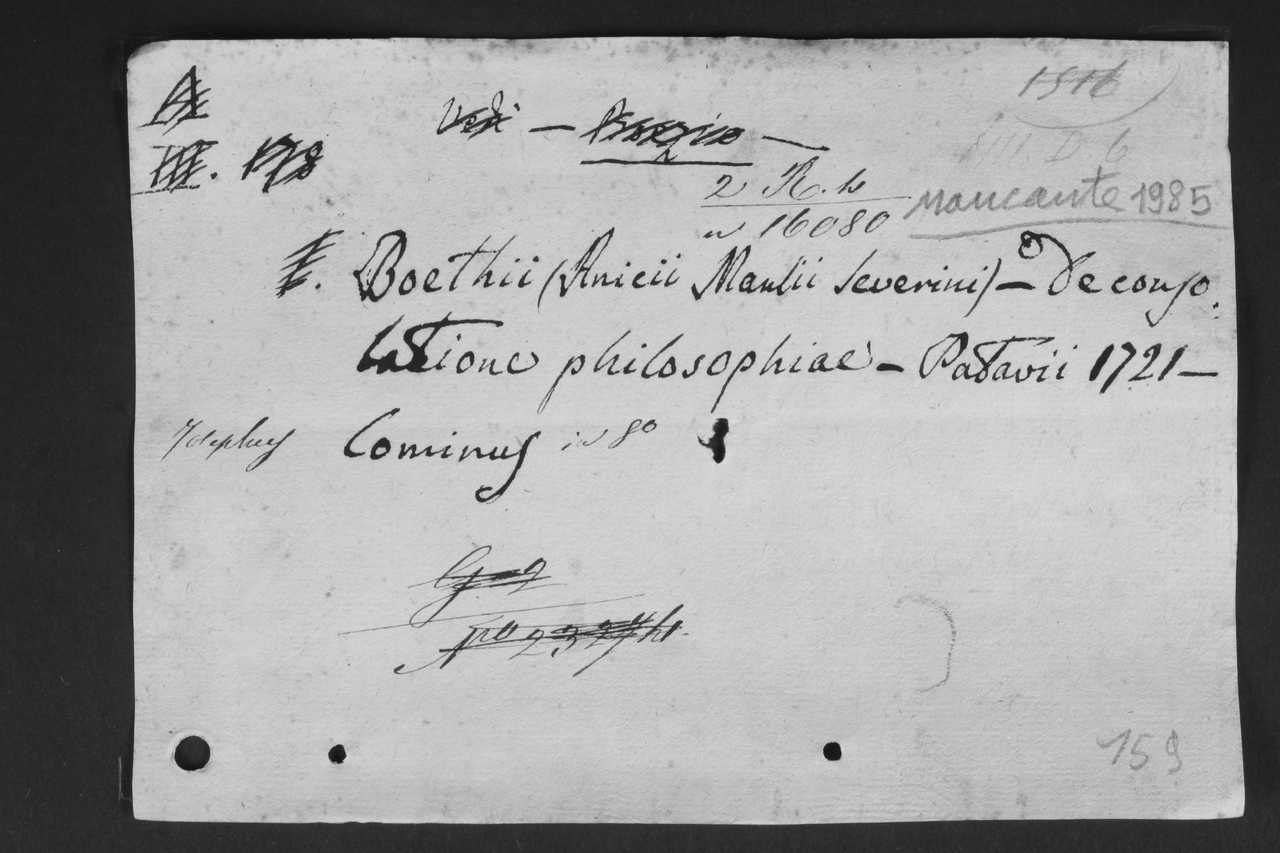 1516
Vedi —
VII. D. 6
III. 178
2 R. b
mancante 1985
n 16080
Boethii (Anicii Manlii Severini) — De conso.
latione philosophiae — Patavii 1721 —
Josephus Cominus in 8°
G 2
N.ro 2327
159